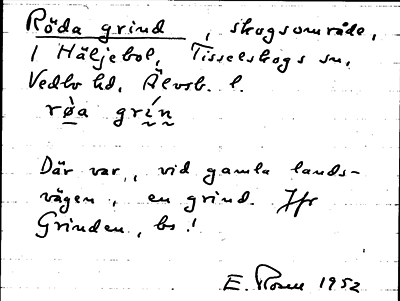 Röda grind, skogsområde,
1 Häljebol, Tisselskogs sn,
Vedbo hd, Älvsb. l.
rø̀a grín
Där var, vid gamla lands-
vägen, en grind. Jfr
Grinden, bs.!
E. Rosen 1952